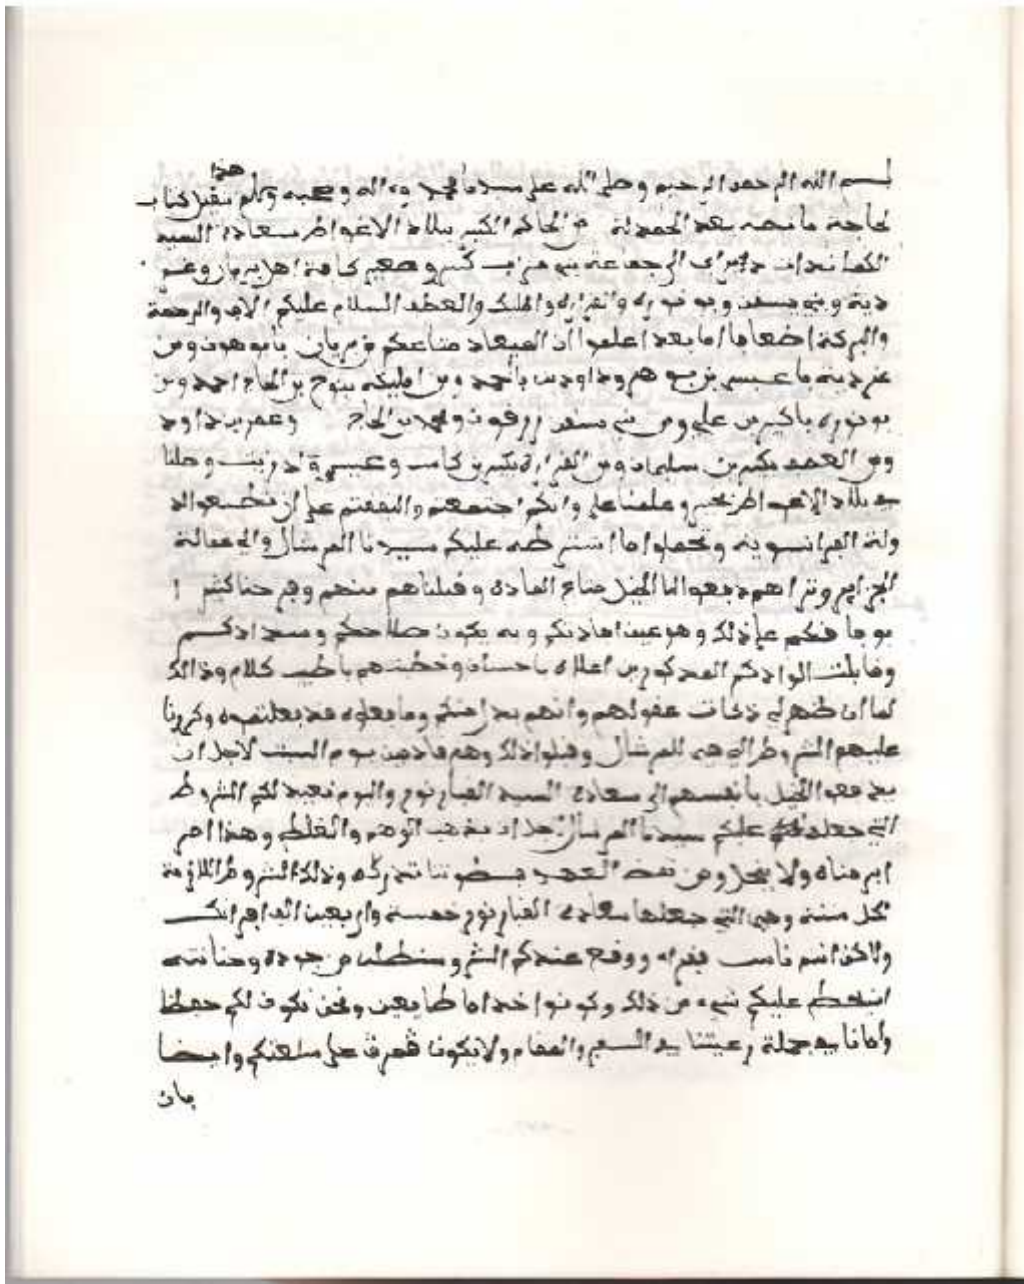 هذا
بسم الله الرحمن الرحيم وصلى الله على سيدنا محمد وءاله وصحبه وسلم نقل كتاب
لحاجة ما نصه بعد الحمدلة من الحاكم الكبير ببلاد الاغواط سعادة السيد
الكمانداب الى جماعة بني مزاب كبير وصغير كافة اهل بريان وغر
داية وبني يسقن وبونوره والقراره وامليكه والعطف السلام عليكم الاف والرحمة
والبركة اضعافا اما بعد اعلموا أن الميعاد متاعكم من بريان باموهون ومن
غرداية باعيسى بن بوهر وداود بن باحمد ومن امليكه بنوح بن الحاج احمد ومن
بونوره باكير بن علي ومن بني يسقن زرقون ومحمد بن الحاج وعمر بن داود
ومن العطف بكير بن سليمان ومن القرارة بكير بن كاسي وعيسى وصلنا
ببلاد الاغواط بخير وعلمنا على وانكم اجتمعتم واتفقتم على ان تخضعوا الد
ولة الفرانسوية وتحملوا ما اشترطه عليكم سيدنا المرشال والي عمالة
الجزاير وتراهم دفعوا لنا الخيل متاع العادة وقبلناهم منهم وفرحنا كثيرا
بوفافكم على ذلك وهو عين افادتكم وبه يكون صلاحكم وسدادكم
وقابلت الوادكم المذكورين اعلاه باحسان وخطبتهم باطيب كلام وذالك
لما ان ظهر لي ذكات عقولهم وانهم بدل منكم وما فعلوه فد فعلتموه وكررنا
عليهم الشروط التي هي للمرشال وقبلوا ذلك وهم قادمين يوم السبت لاجل ان
يدفعوا الخيل بانفسهم الى سعادة السيد القبارنور واليوم نعيد لكم الشروط
التي جعلها عليكم سيدنا المرشال لاجل ان يذهب الوهم والغلط وهذا امر
ابرمناه ولا ينحل ومن نقض العهد بسطوتنا تدركه وتلك الشروط اللازمة
كل سنة وهي التي جعلها سعادة القبارنور خمسة واربعين الف افرانك
ولاكن انتم ناس فقراء ووقع عندكم الشر وسنطلب من جوده وحنانته
ان يحط عليكم شيء من ذلك وكونوا خداما طايعين ونحن نكون لكم حفظا
وامانا في جملة رعيتنا في السفر والمقام ولا يكون قمرق على سلعتكم وايضا
فان